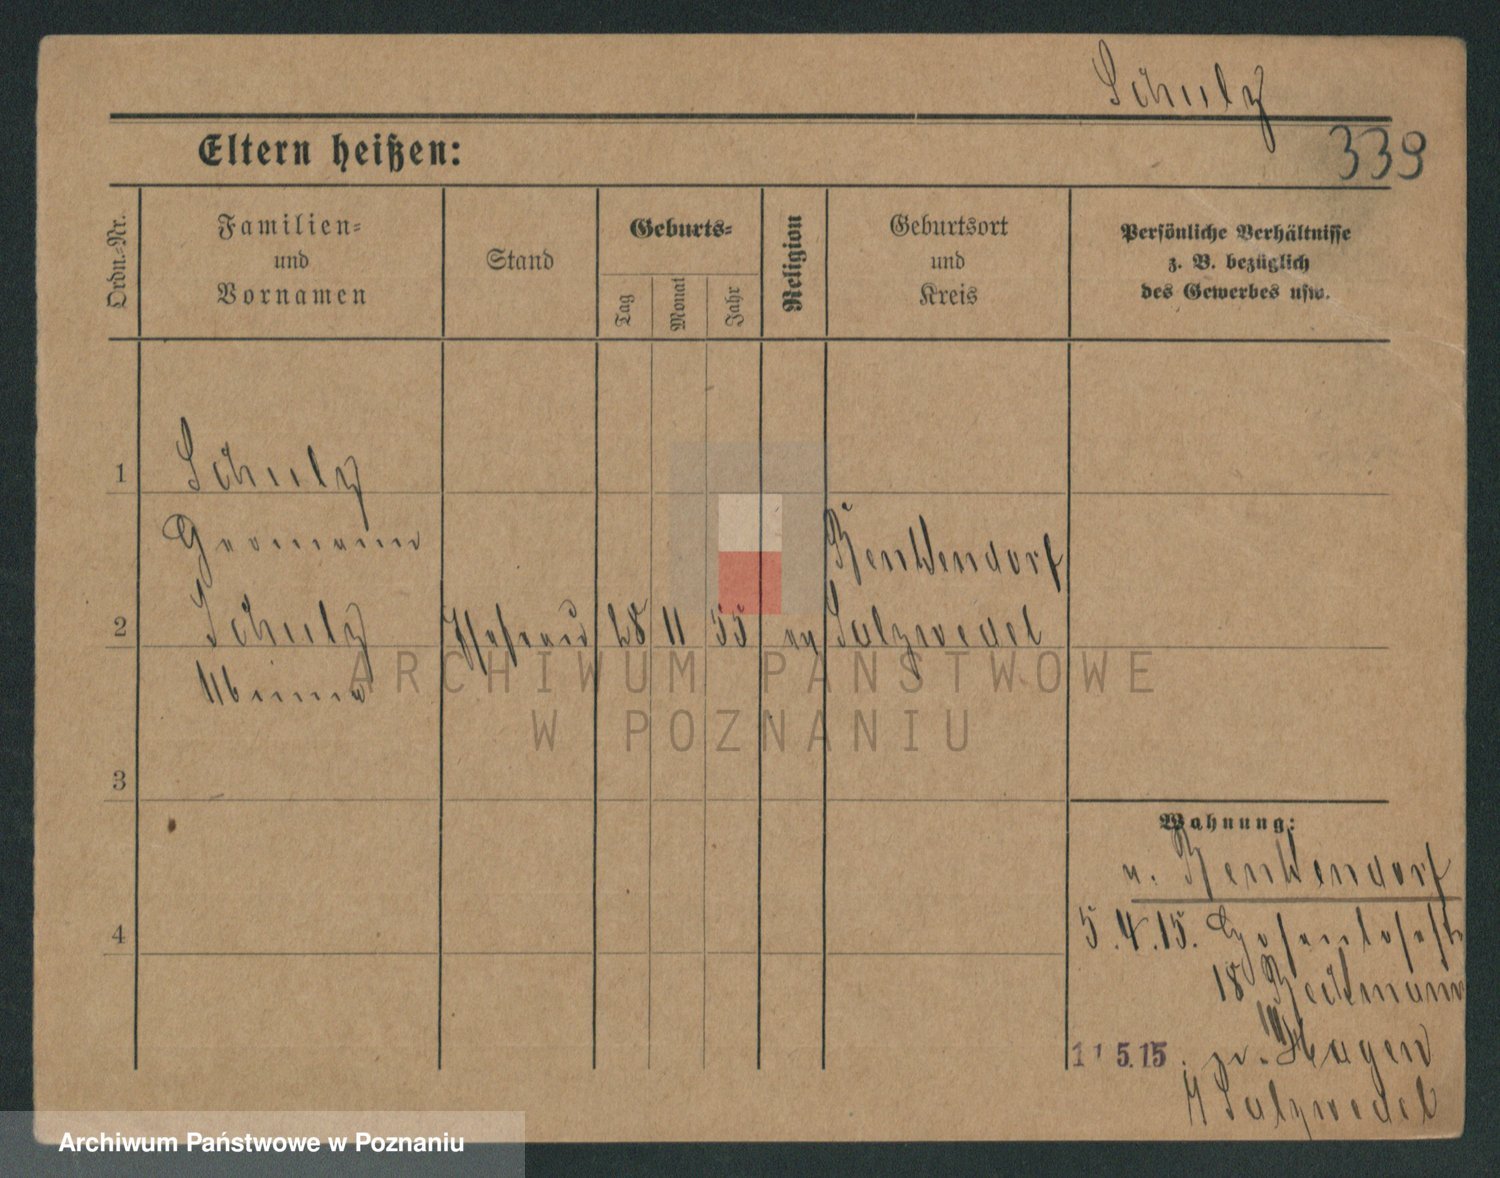 Schulz
339
Eltern heißen:
Ordn.-Nr.
Familien-
und
Vornamen
Stand
Geburts-
Tag
Monat
Jahr
Religion
Geburtsort
und
Kreis
Persönliche Verhältnisse
z. B. bezüglich
des Gewerbes usw.
1
Schulz
Germann
2
Schulz
Minna
Ehefrau
28
11
55
ev
Benkendorf
Salzwedel
3
4
Wohnung:
v. Benkendorf
5.4.15.
18 Beckmann
11 5.15. zu. Hagen
Salzwedel
ARCHIWUM PAŃSTWOWE
W POZNANIU
Archiwum Państwowe w Poznaniu